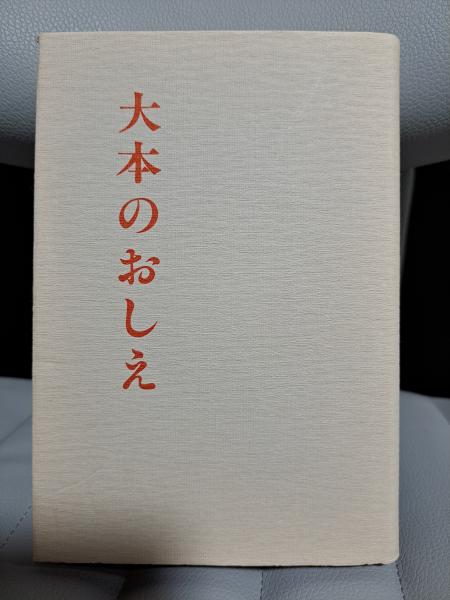 大本のおしえ